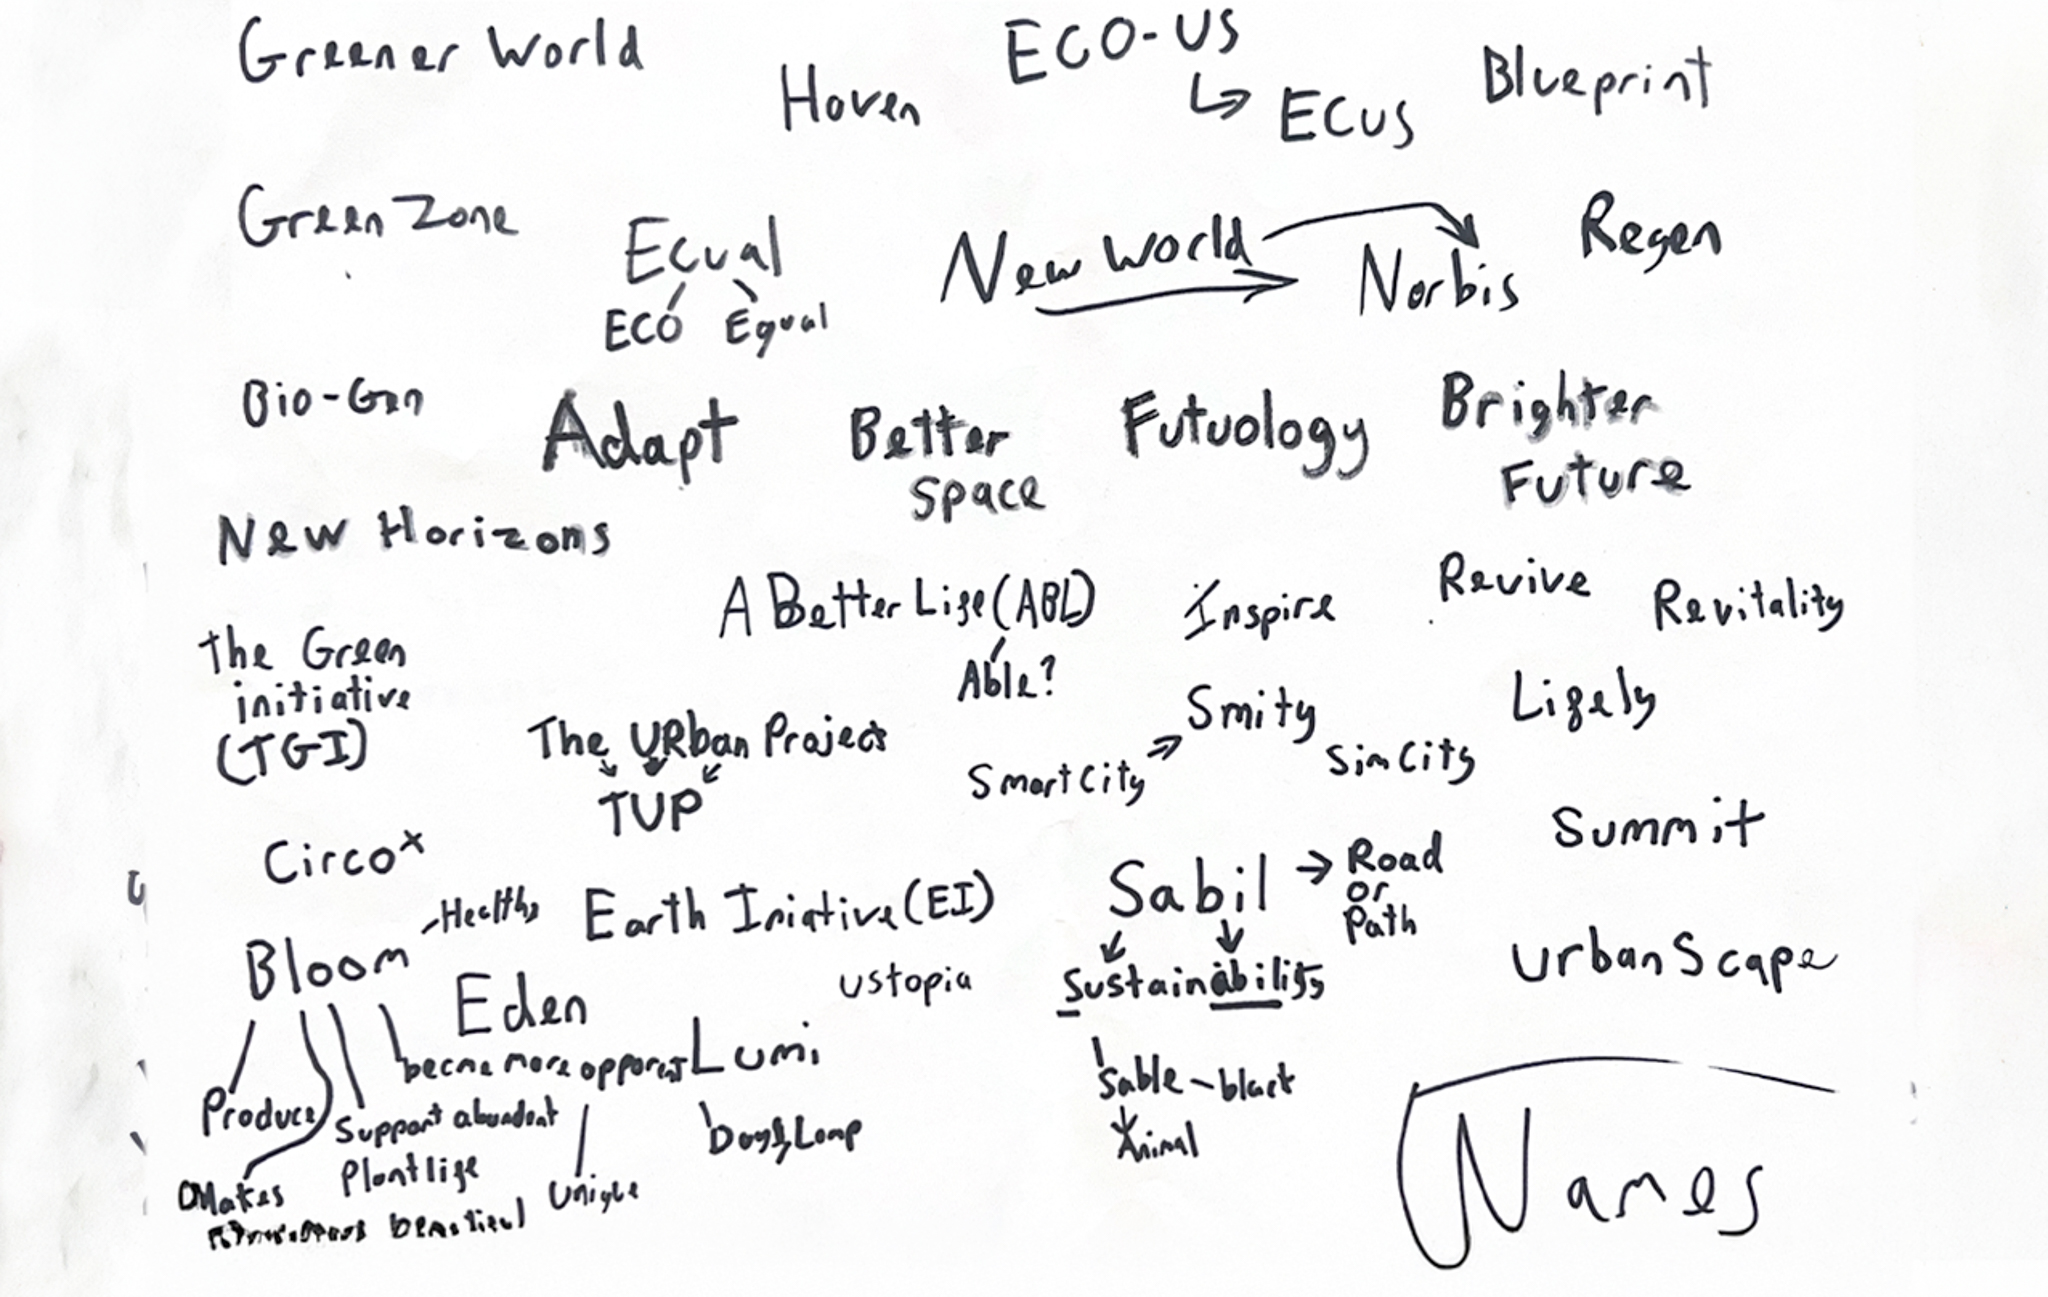 Greener World
Hoven
ECO-US
ECUS
Blueprint
Green Zone
Ecual
ECO Equal
New World
Norbis
Regen
Bio-Gen
Adapt
Better
Space
Futuology
Brighter
Future
New Horizons
A Better Life (ABL)
Able?
Inspire
Revive
Revitality
The Green
initiative
(TGI)
The URban Project
TUP
Smart City
Smity
Sim City
Lifely
Summit
Circo
Bloom
-Healthy
Earth Iniative (EI)
Sabil
Road
or
Path
Sustainability
Sable - black
Animal
Urban Scape
Eden
Ustopia
Lumi
become more apparent
Produce
Support abundant
Plant life
Makes
beautiful
Unique
Names